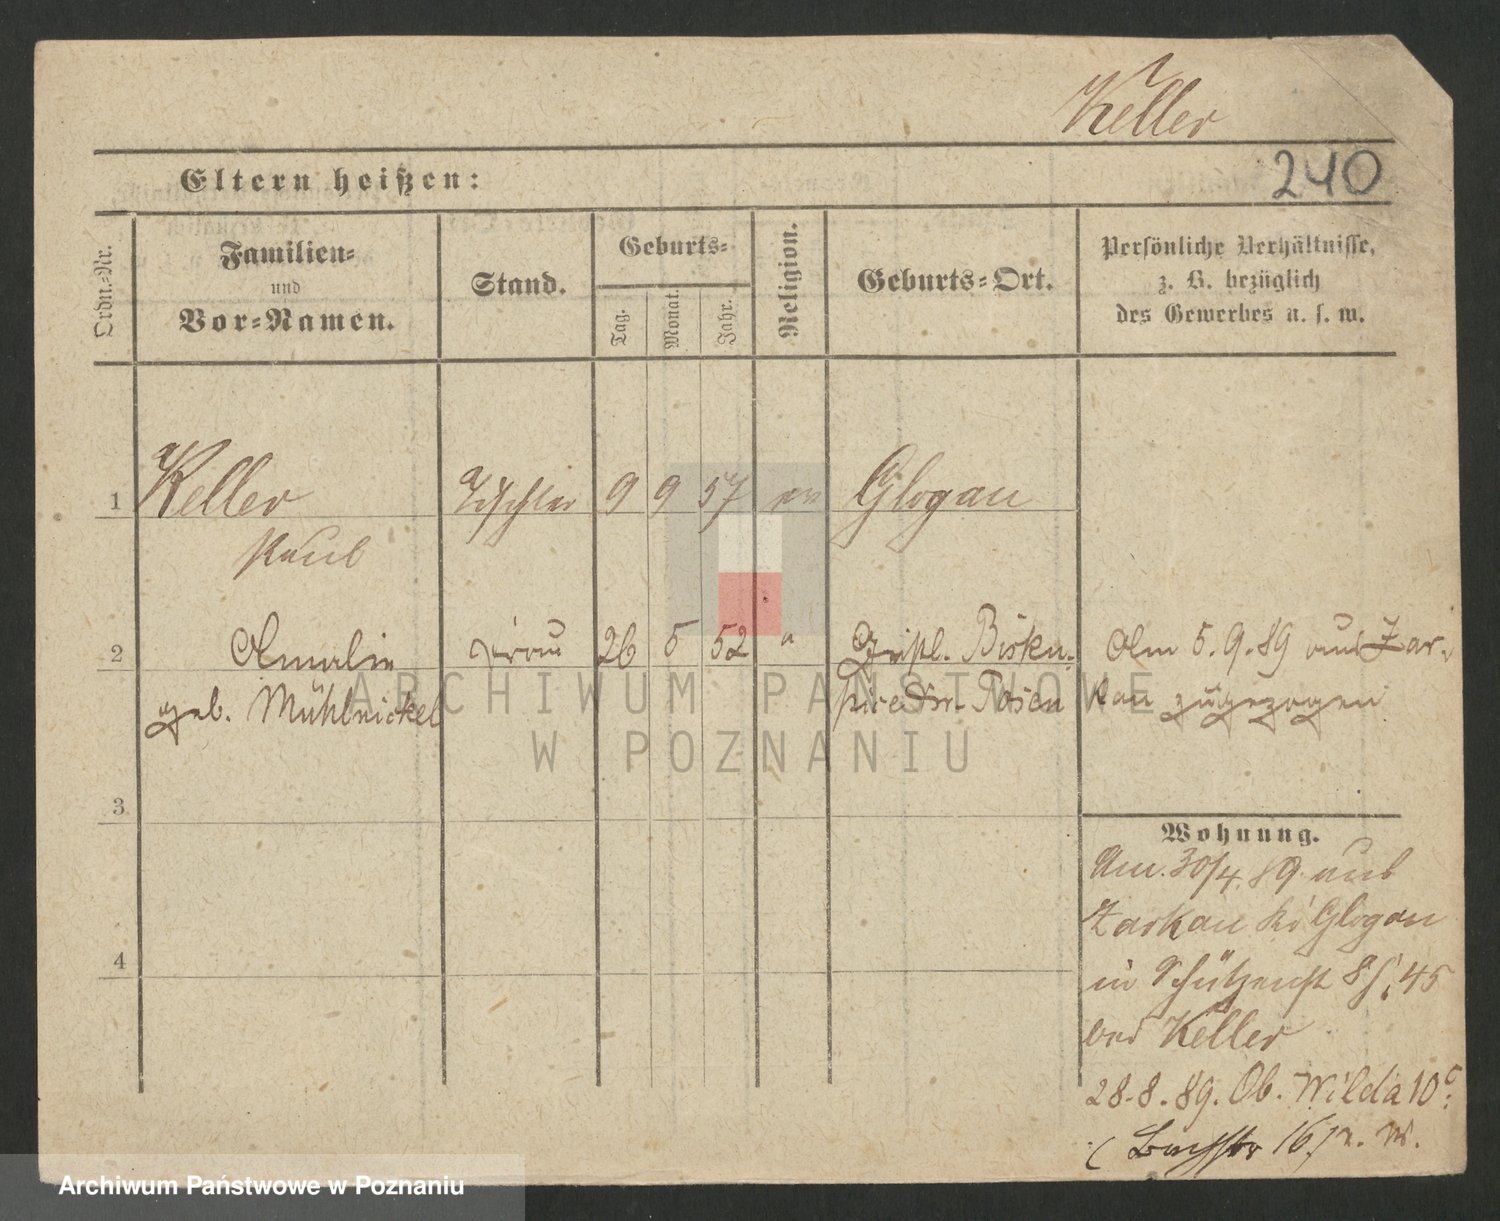 Keller
Eltern heißen:
240
Ordn.-Nr.
Familien-
und
Vor-Namen.
Stand.
Geburts-
Tag.
Monat.
Jahr.
Religion.
Geburts-Ort.
Persönliche Verhältnisse,
z. B. bezüglich
des Gewerbes u. s. w.
1 Keller Tischler 9 9 57 ev Glogau
Paul
2 Amalie Frau 26 5 52 " Birkn-
geb. Mühlnickel Posen
Am 5.9.89 aus Zar-
kau zugezogen
3
Wohnung.
Am 30/4. 89 aus
Zarkau Kr Glogau
in Schützenst 8 45
bei Keller
28.8.89. Ob. Wilda 10
4
16/
ARCHIWUM PAŃSTWOWE
W POZNANIU
Archiwum Państwowe w Poznaniu